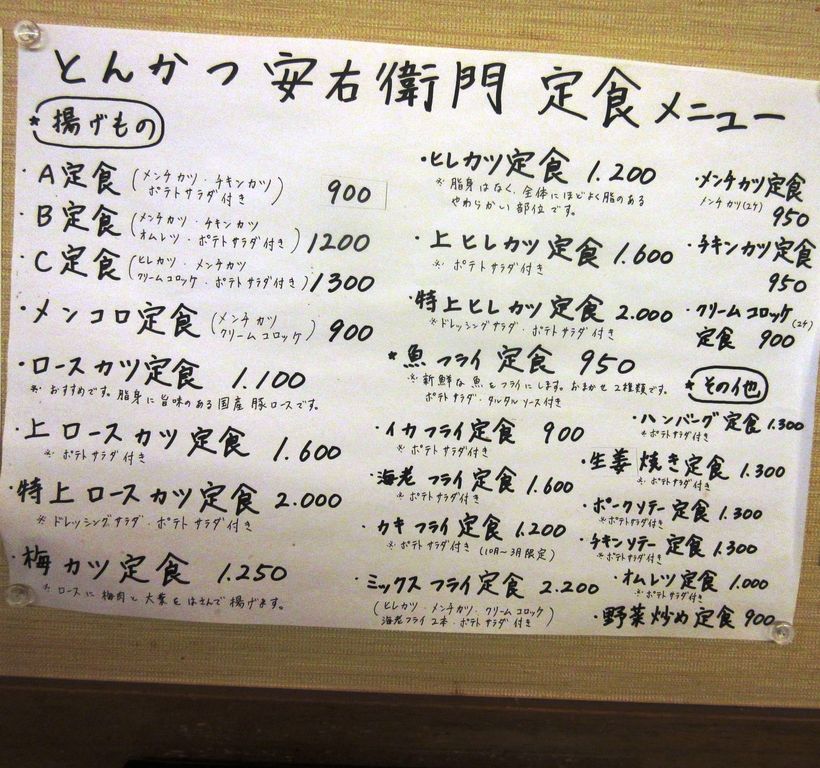 とんかつ 安右衛門 定食メニュー
* 揚げもの
・A定食 (メンチカツ・チキンカツ
ポテトサラダ付き) 900
・B定食 (メンチカツ・チキンカツ
オムレツ・ポテトサラダ付き) 1200
・C定食 (ヒレカツ・メンチカツ
クリームコロッケ・ポテトサラダ付き) 1300
・メンコロ定食 (メンチカツ
クリームコロッケ) 900
・ロースカツ定食 1.100
※ おすすめです。脂身に旨味のある国産豚ロースです。
・上ロースカツ定食 1.600
※ ポテトサラダ付き
・特上ロースカツ定食 2.000
※ ドレッシングサラダ・ポテトサラダ付き
・梅カツ定食 1.250
※ ロースに梅肉と大葉をはさんで揚げます。
・ヒレカツ定食 1.200
※ 脂身はなく、全体にほどよく脂のある
やわらかい部位です。
・上ヒレカツ定食 1.600
※ ポテトサラダ付き
・特上ヒレカツ定食 2.000
※ドレッシングサラダ・ポテトサラダ付き
* 魚フライ定食 950
※ 新鮮な魚をフライにします。おまかせ2種類です。
ポテトサラダ・タルタルソース付き
・イカフライ定食 900
※ ポテトサラダ付き
・海老フライ定食 1.600
※ ポテトサラダ付き
・カキフライ定食 1.200
※ ポテトサラダ付き (10月〜3月限定)
・ミックスフライ定食 2.200
(ヒレカツ・メンチカツ・クリームコロッケ
海老フライ2本・ポテトサラダ付き)
・メンチカツ定食
メンチカツ(2ケ)
950
・チキンカツ定食
950
・クリームコロッケ(2ケ)
定食 900
* その他
・ハンバーグ定食 1.300
※ポテトサラダ付き
・生姜焼き定食 1.300
※ ポテトサラダ付き
・ポークソテー定食 1.300
※ポテトサラダ付き
・チキンソテー定食 1.300
※ポテトサラダ付き
・オムレツ定食 1.000
※ポテトサラダ付き
・野菜炒め定食 900